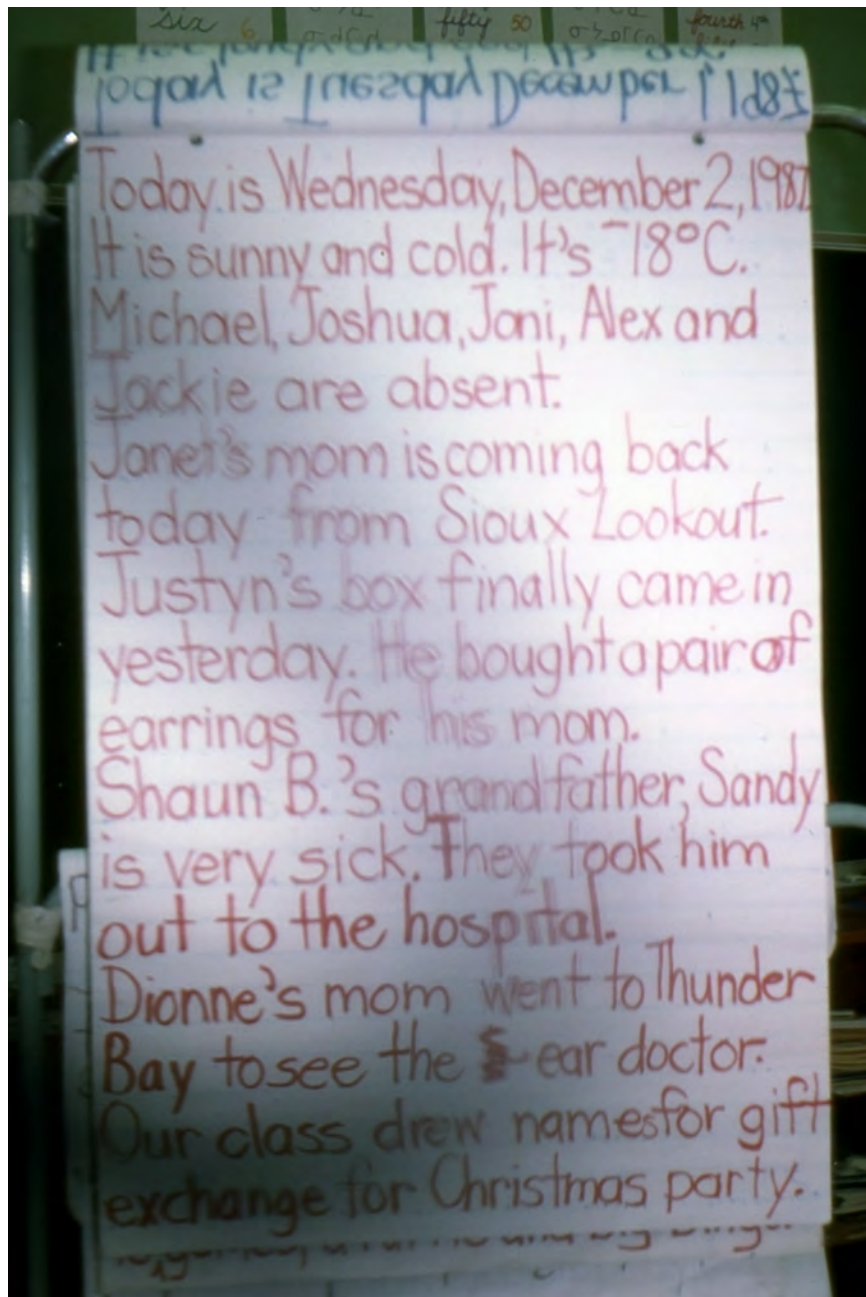 six 6
fifty 50
fourth 4th
Today is Tuesday December 1, 1987
Today is Wednesday, December 2, 1987
It is sunny and cold. It's -18°C.
Michael, Joshua, Jani, Alex and
Jackie are absent.
Janet's mom is coming back
today from Sioux Lookout.
Justyn's box finally came in
yesterday. He bought a pair of
earrings for his mom.
Shaun B.'s grandfather, Sandy
is very sick. They took him
out to the hospital.
Dionne's mom went to Thunder
Bay to see the ear doctor.
Our class drew names for gift
exchange for Christmas party.